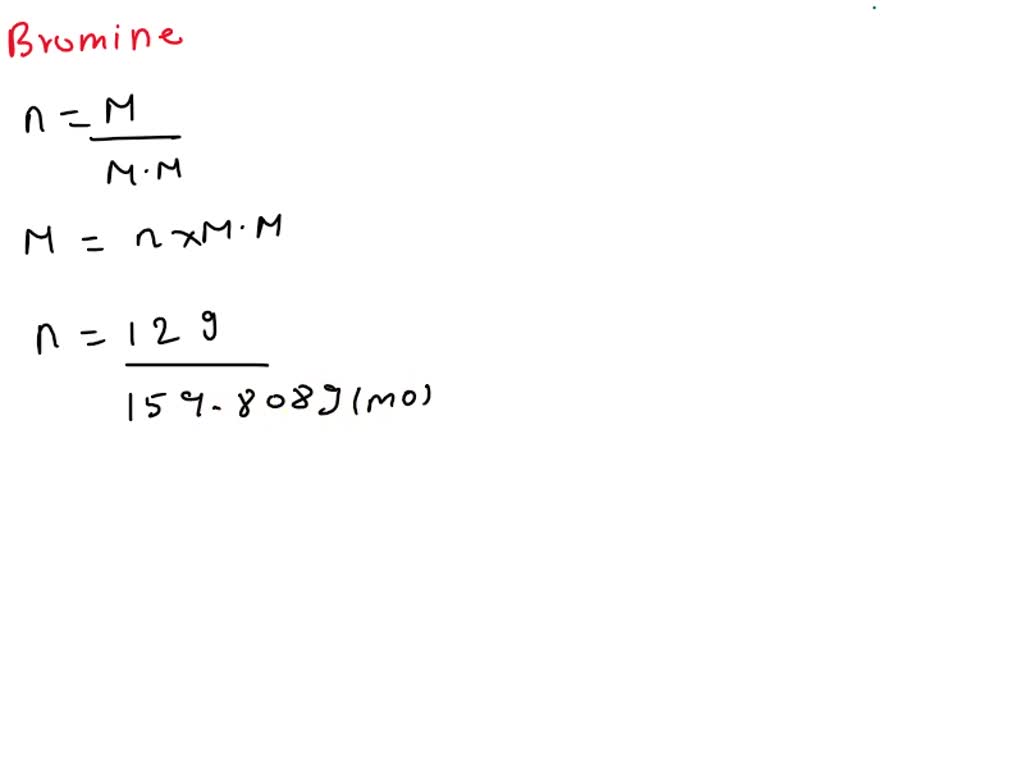 Bromine
n = M
M·M
M = n×M·M
n = 12 g
159.808g/mol